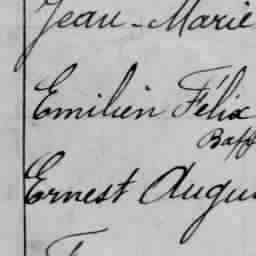 Jean-Marie
Emilien Félix
Baff
Ernest Augu